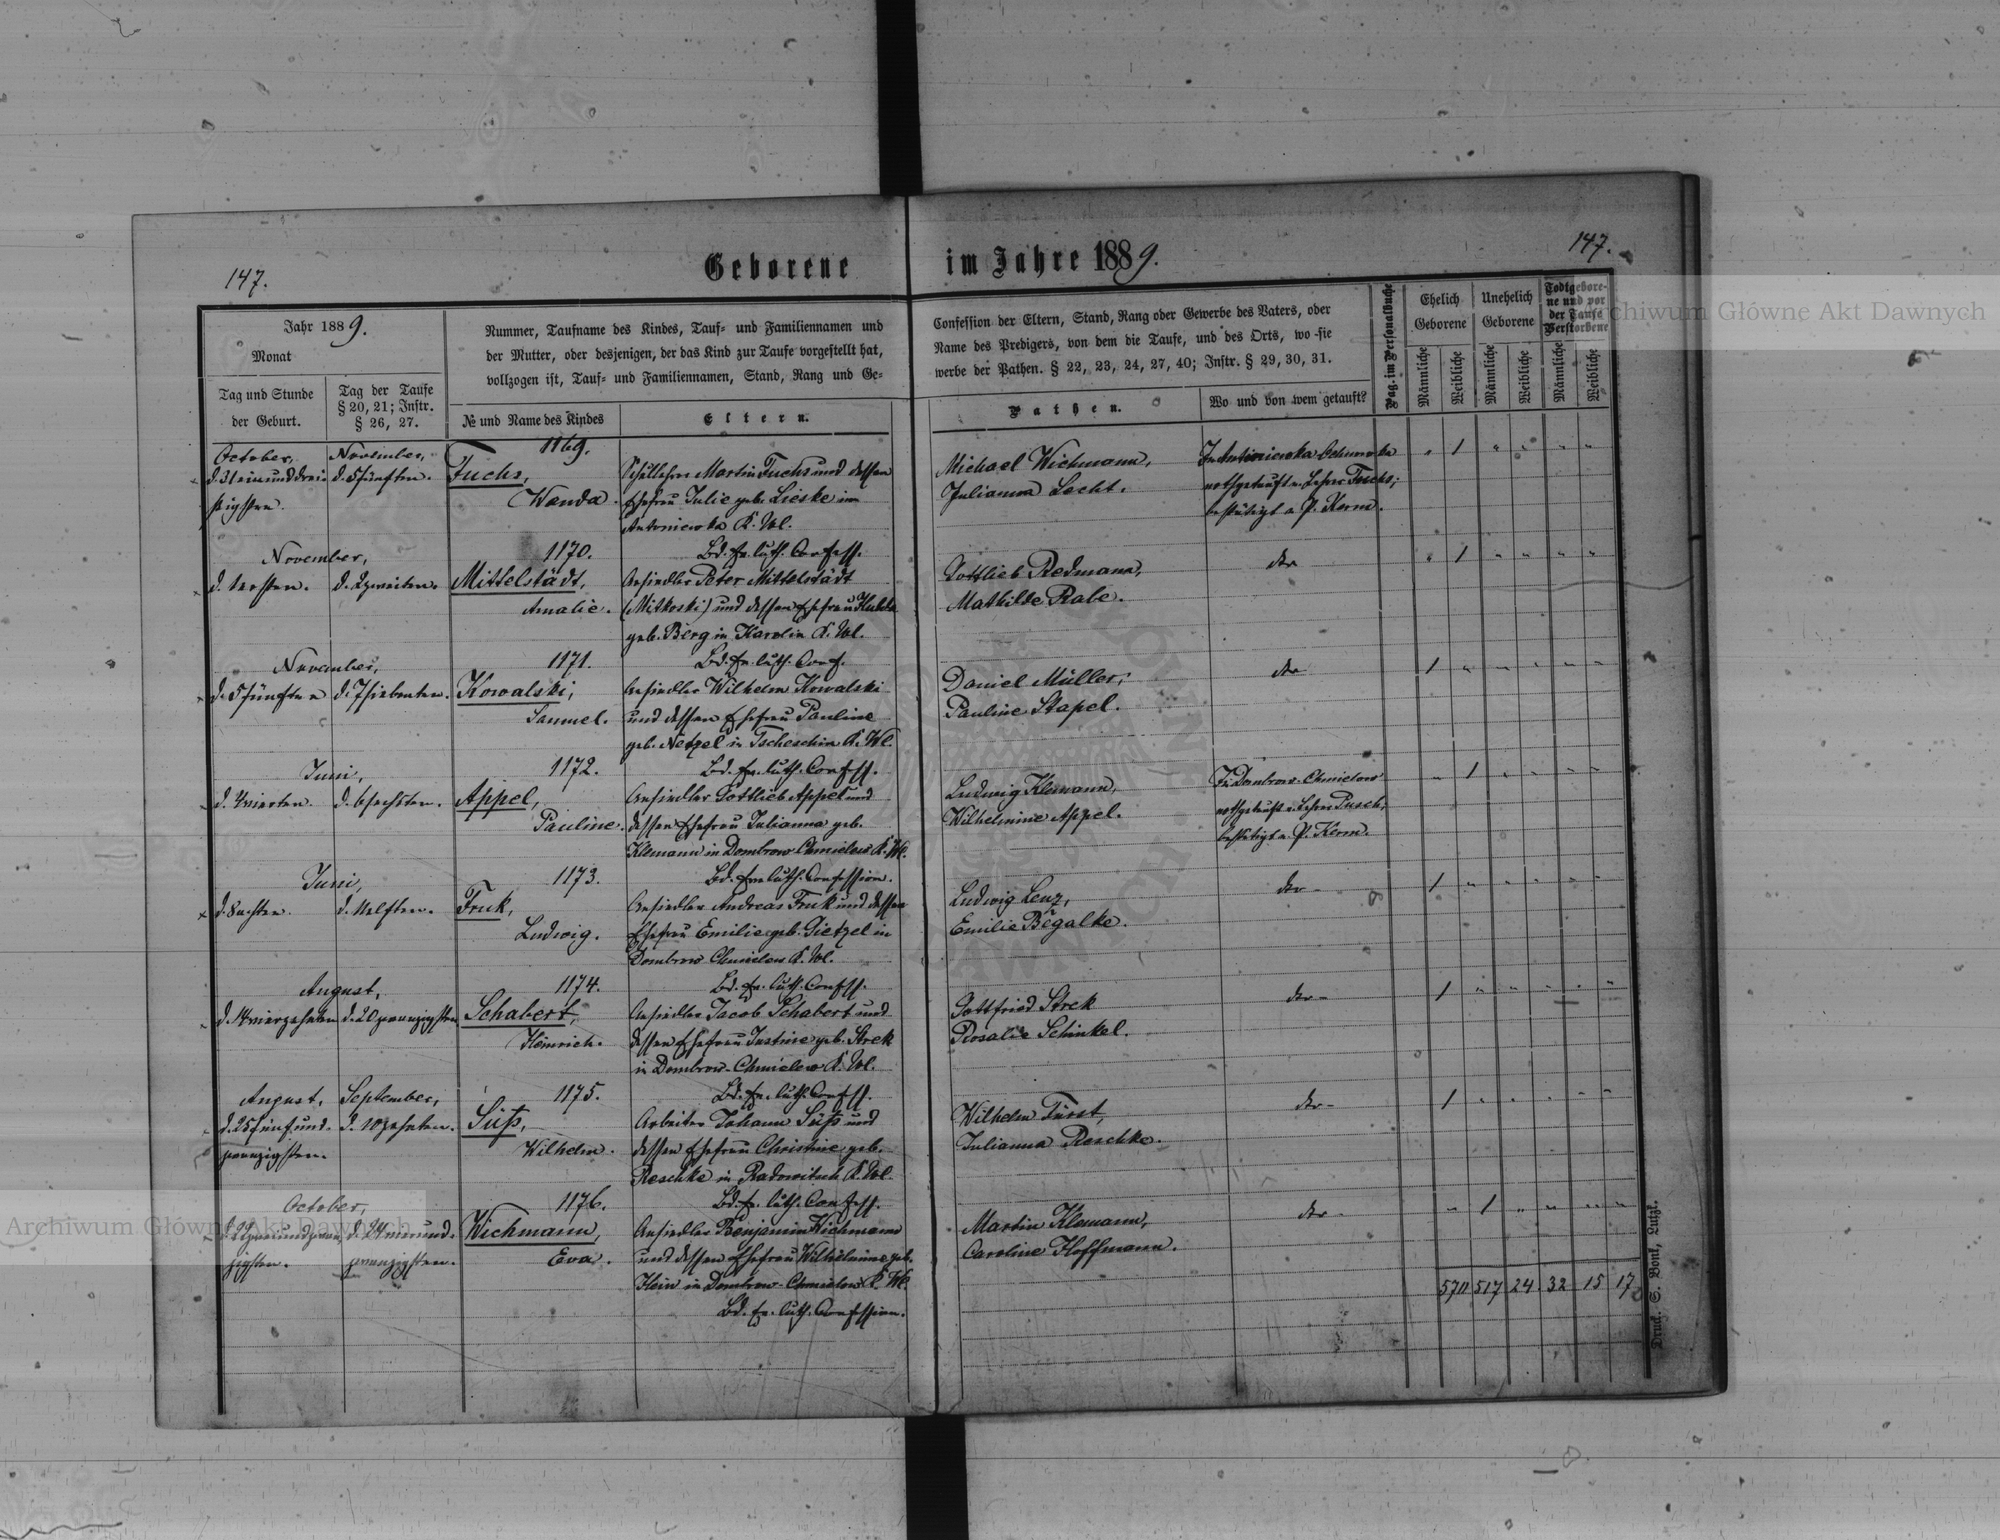 147.
Geborene
im Jahre 1889.
147.
Jahr 1889.
Monat
Tag und Stunde
der Geburt.
Tag der Taufe
§ 20, 21; Instr.
§ 26, 27.
Nummer, Taufname des Kindes, Tauf- und Familiennamen und
der Mutter, oder desjenigen, der das Kind zur Taufe vorgestellt hat,
vollzogen ist, Tauf- und Familiennamen, Stand, Rang und Ge-
№ und Name des Kindes
Eltern.
Confession der Eltern, Stand, Rang oder Gewerbe des Vaters, oder
Name des Predigers, von dem die Taufe, und des Orts, wo sie
werbe der Pathen. § 22, 23, 24, 27, 40; Instr. § 29, 30, 31.
Pathen.
Wo und von wem getauft?
Pag. im Personalbuche
Ehelich
Geborene
Unehelich
Geborene
Todtgebore-
ne und vor
der Taufe
Verstorbene
Männliche
Weibliche
Männliche
Weibliche
Männliche
Weibliche
October,
d. 31 einunddrei-
ßigsten.
November,
d. 5 fünften.
1169.
Fuchs,
Wanda.
Schullehrer Martin Fuchs und dessen
Ehefrau Julie geb. Lieske in
Antoniewka K. Wl.
Bd. Ev. luth. Confess.
Michael Wichmann,
Julianna Secht.
In Antoniewka
nothgetauft v. Lehrer Fuchs;
bestätigt v. P. Kerm.
" 1 " " " "
November,
d. 1 ersten.
d. 2 zweiten.
1170.
Mittelstädt,
Amalie.
Ansiedler Peter Mittelstädt
(Mitkoski) und dessen Ehefrau Hulda
geb. Berg in Karolin K. Wl.
Bd. Ev. luth. Conf.
Gottlieb Redmann,
Mathilde Rabe.
dto
" 1 " " " "
November,
d. 5 fünften
d. 7 siebenten.
1171.
Kowalski,
Samuel.
Ansiedler Wilhelm Kowalski
und dessen Ehefrau Pauline
geb. Netzel in Tscheschin K. Wl.
Bd. Ev. luth. Confess.
Daniel Müller,
Pauline Stapel.
dto
1 " " " " "
Juni,
d. 4 vierten.
d. 6 sechsten.
1172.
Appel,
Pauline.
Ansiedler Gottlieb Appel und
dessen Ehefrau Julianna geb.
Klemann in Dombrow-Chmielow K. Wl.
Bd. Ev. luth. Confession.
Ludwig Klemann,
Wilhelmine Appel.
In Dombrow-Chmielow
nothgetauft v. Lehrer Pusch,
bestätigt v. P. Kerm.
" 1 " " " "
Juni,
d. 8 achten.
d. 11 elften.
1173.
Fruk,
Ludwig.
Ansiedler Andreas Fruk und dessen
Ehefrau Emilie geb. Gietzel in
Dombrow-Chmielow K. Wl.
Bd. Ev. luth. Confess.
Ludwig Lenz,
Emilie Begalke.
dto
1 " " " " "
August,
d. 14 vierzehnten
d. 20 zwanzigsten
1174.
Schabert,
Heinrich.
Ansiedler Jacob Schabert und
dessen Ehefrau Justine geb. Strek
in Dombrow-Chmielow K. Wl.
Bd. Ev. luth. Confess.
Gottfried Strek
Rosalie Schinkel.
dto
1 " " " " "
August,
d. 25 fünfund-
zwanzigsten.
September,
d. 10 zehnten.
1175.
Süß,
Wilhelm.
Arbeiter Johann Süß und
dessen Ehefrau Christine geb.
Reschke in Radowitsch K. Wl.
Bd. Ev. luth. Confess.
Wilhelm Fürst,
Julianna Reschke.
dto
1 " " " " "
October,
d. 22 zweiundzwan-
zigsten.
d. 24 vierund-
zwanzigsten.
1176.
Wichmann,
Eva.
Ansiedler Benjamin Wichmann
und dessen Ehefrau Wilhelmine geb.
Hein in Dombrow-Chmielow K. Wl.
Bd. Ev. luth. Confession.
Martin Klemann,
Caroline Hoffmann.
dto
" 1 " " " "
570 517 24 32 15 17
Druck. S. Bonk, Lutzk.
Archiwum Główne Akt Dawnych
Archiwum Główne Akt Dawnych